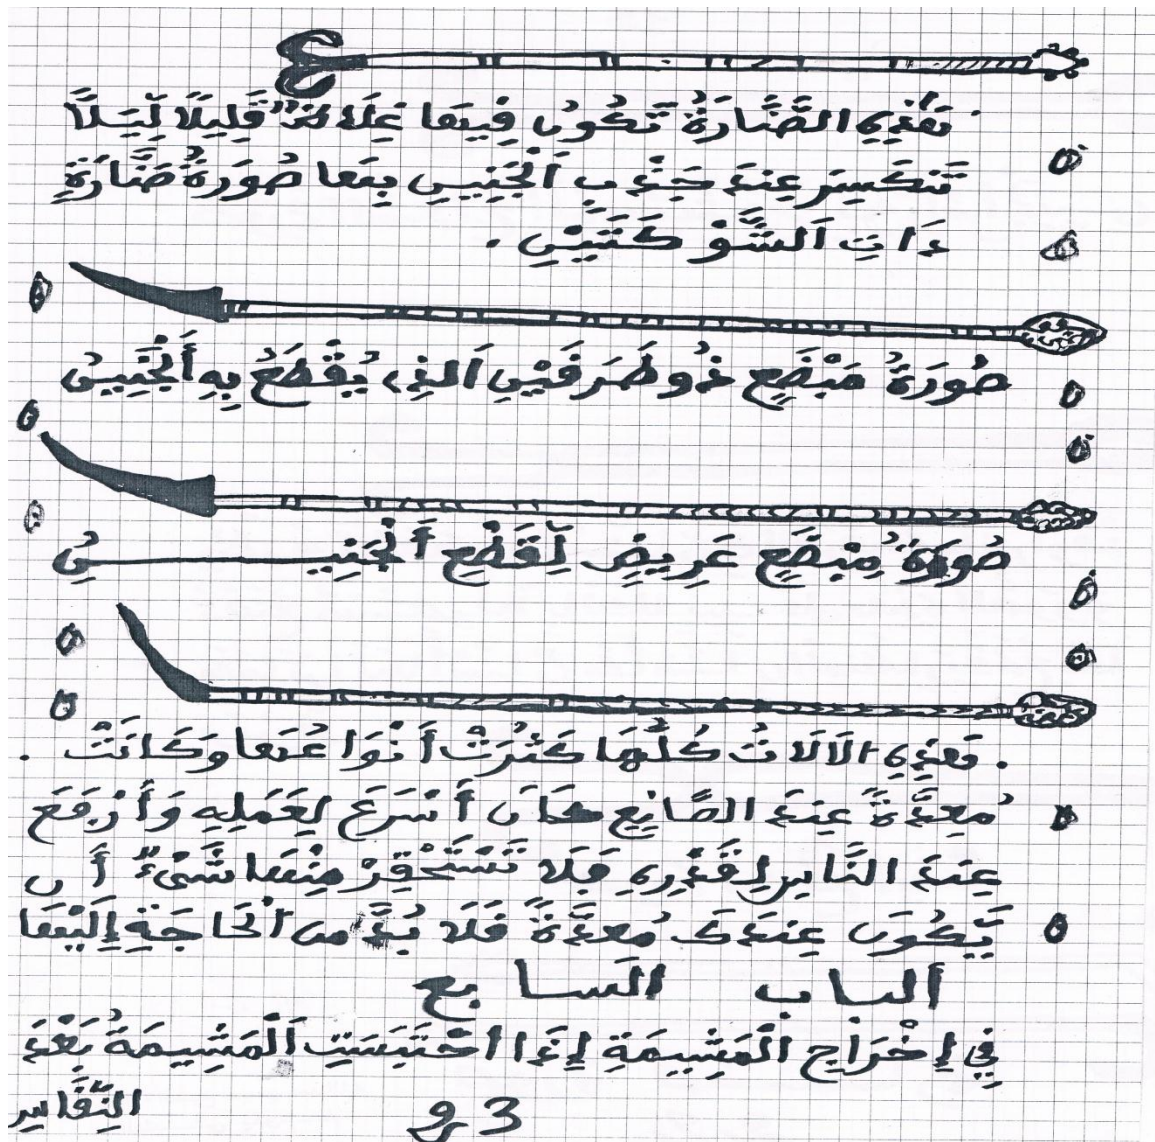 فَهَذِهِ الصَّنَّارَةُ تَكُونُ فِيهَا غِلَظٌ قَلِيلًا لِّيَلَّا
تَنكَسِرَ عِندَ جَذْبِ اَلْجَنِينِ بِهَا صُورَةُ صَنَّارَةٍ
ذَاتِ اَلشَّوْكَتَيْنِ .
صُورَةُ مَبْضَعٍ ذُو طَرَفَيْنِ اَلذِي يُقْطَعُ بِهِ اَلْجَنِينُ
صُورَةُ مِبْضَعٍ عَرِيضٍ لِّقَطْعِ اَلْجَنِينِ
. فَهَذِهِ الَالَاتُ كُلُّهَا كَثُرَتْ أَنْوَاعُهَا وَكَانَتْ .
مُعَدَّةً عِندَ الصَّانِعِ كَانَ أَسْرَعَ لِعَمَلِهِ وَأَرْفَعَ
عِندَ النَّاسِ لِقَدْرِهِ فَلَا تَسْتَحْقِرْ مِنْهَا شَىْءٌ أَن
يَّكُونَ عِندَكَ مُعَدَّةً فَلَا بُدَّ مِنَ اَلْحَاجَةِ إِلَيْهَا
اَلباب اَلسابع
فِي إِخْرَاجِ اَلْمَشِيمَةِ إِذَا اَحْتَبَسَتِ اَلْمَشِيمَةُ بَعْدَ
النِّفَاسِ